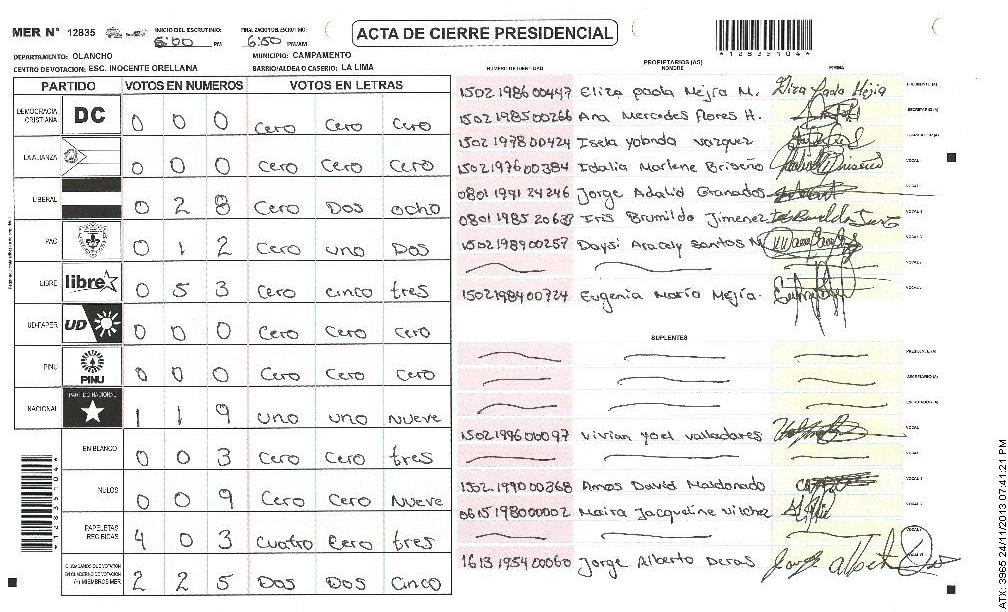 MER N° 12835 INICIO DEL ESCRUTINIO: 6:00 PM FINALIZACION DEL ESCRUTINIO: 6:50 PM/AM
ACTA DE CIERRE PRESIDENCIAL
DEPARTAMENTO: OLANCHO MUNICIPIO: CAMPAMENTO
CENTRO DE VOTACION: ESC. INOCENTE ORELLANA BARRIO/ALDEA O CASERIO: LA LIMA
PARTIDO VOTOS EN NUMEROS VOTOS EN LETRAS
DEMOCRACIA CRISTIANA DC 0 0 0 Cero Cero Cero
LA ALIANZA 0 0 0 Cero Cero Cero
LIBERAL 0 2 8 Cero Dos ocho
PAC 0 1 2 Cero uno Dos
LIBRE libre 0 5 3 Cero cinco tres
UD-FAPER UD 0 0 0 Cero Cero Cero
PINU PINU 0 0 0 Cero Cero Cero
NACIONAL PARTIDO NACIONAL 1 1 9 uno uno nueve
EN BLANCO 0 0 3 Cero Cero tres
NULOS 0 0 9 Cero Cero Nueve
PAPELETAS RECIBIDAS 4 0 3 cuatro Cero tres
2 2 5 Dos Dos Cinco
*12835104*
NUMERO DE IDENTIDAD PROPIETARIOS (AS) NOMBRE FIRMA
1502198600447 Eliza paola Mejia M. Eliza Paola Mejia PRESIDENTE (A)
1502198500266 Ana Mercedes flores H. SECRETARIO (A)
1502197800424 Isela yolanda vazquez ESCRUTADOR (A)
1502197600384 Idalia Marlene Briseño VOCAL
0801199124246 Jorge Adalid Granados VOCAL
0801198520633 Iris Brumilda Jimenez VOCAL
1502198900257 Daysi Aracely Santos N VOCAL
VOCAL
1502198400724 Eugenia María Mejía. VOCAL
SUPLENTES
PRESIDENTE (A)
SECRETARIO (A)
ESCRUTADOR (A)
1502199600097 Vivian yoel valladares VOCAL
VOCAL
1502199000368 Amos David Maldonado VOCAL
0615198000002 Maira Jacqueline Vilchez VOCAL
VOCAL
1613195400060 Jorge Alberto Deras Jorge Albert VOCAL
ATX: 3965 24/11/2013 07:41:21 PM